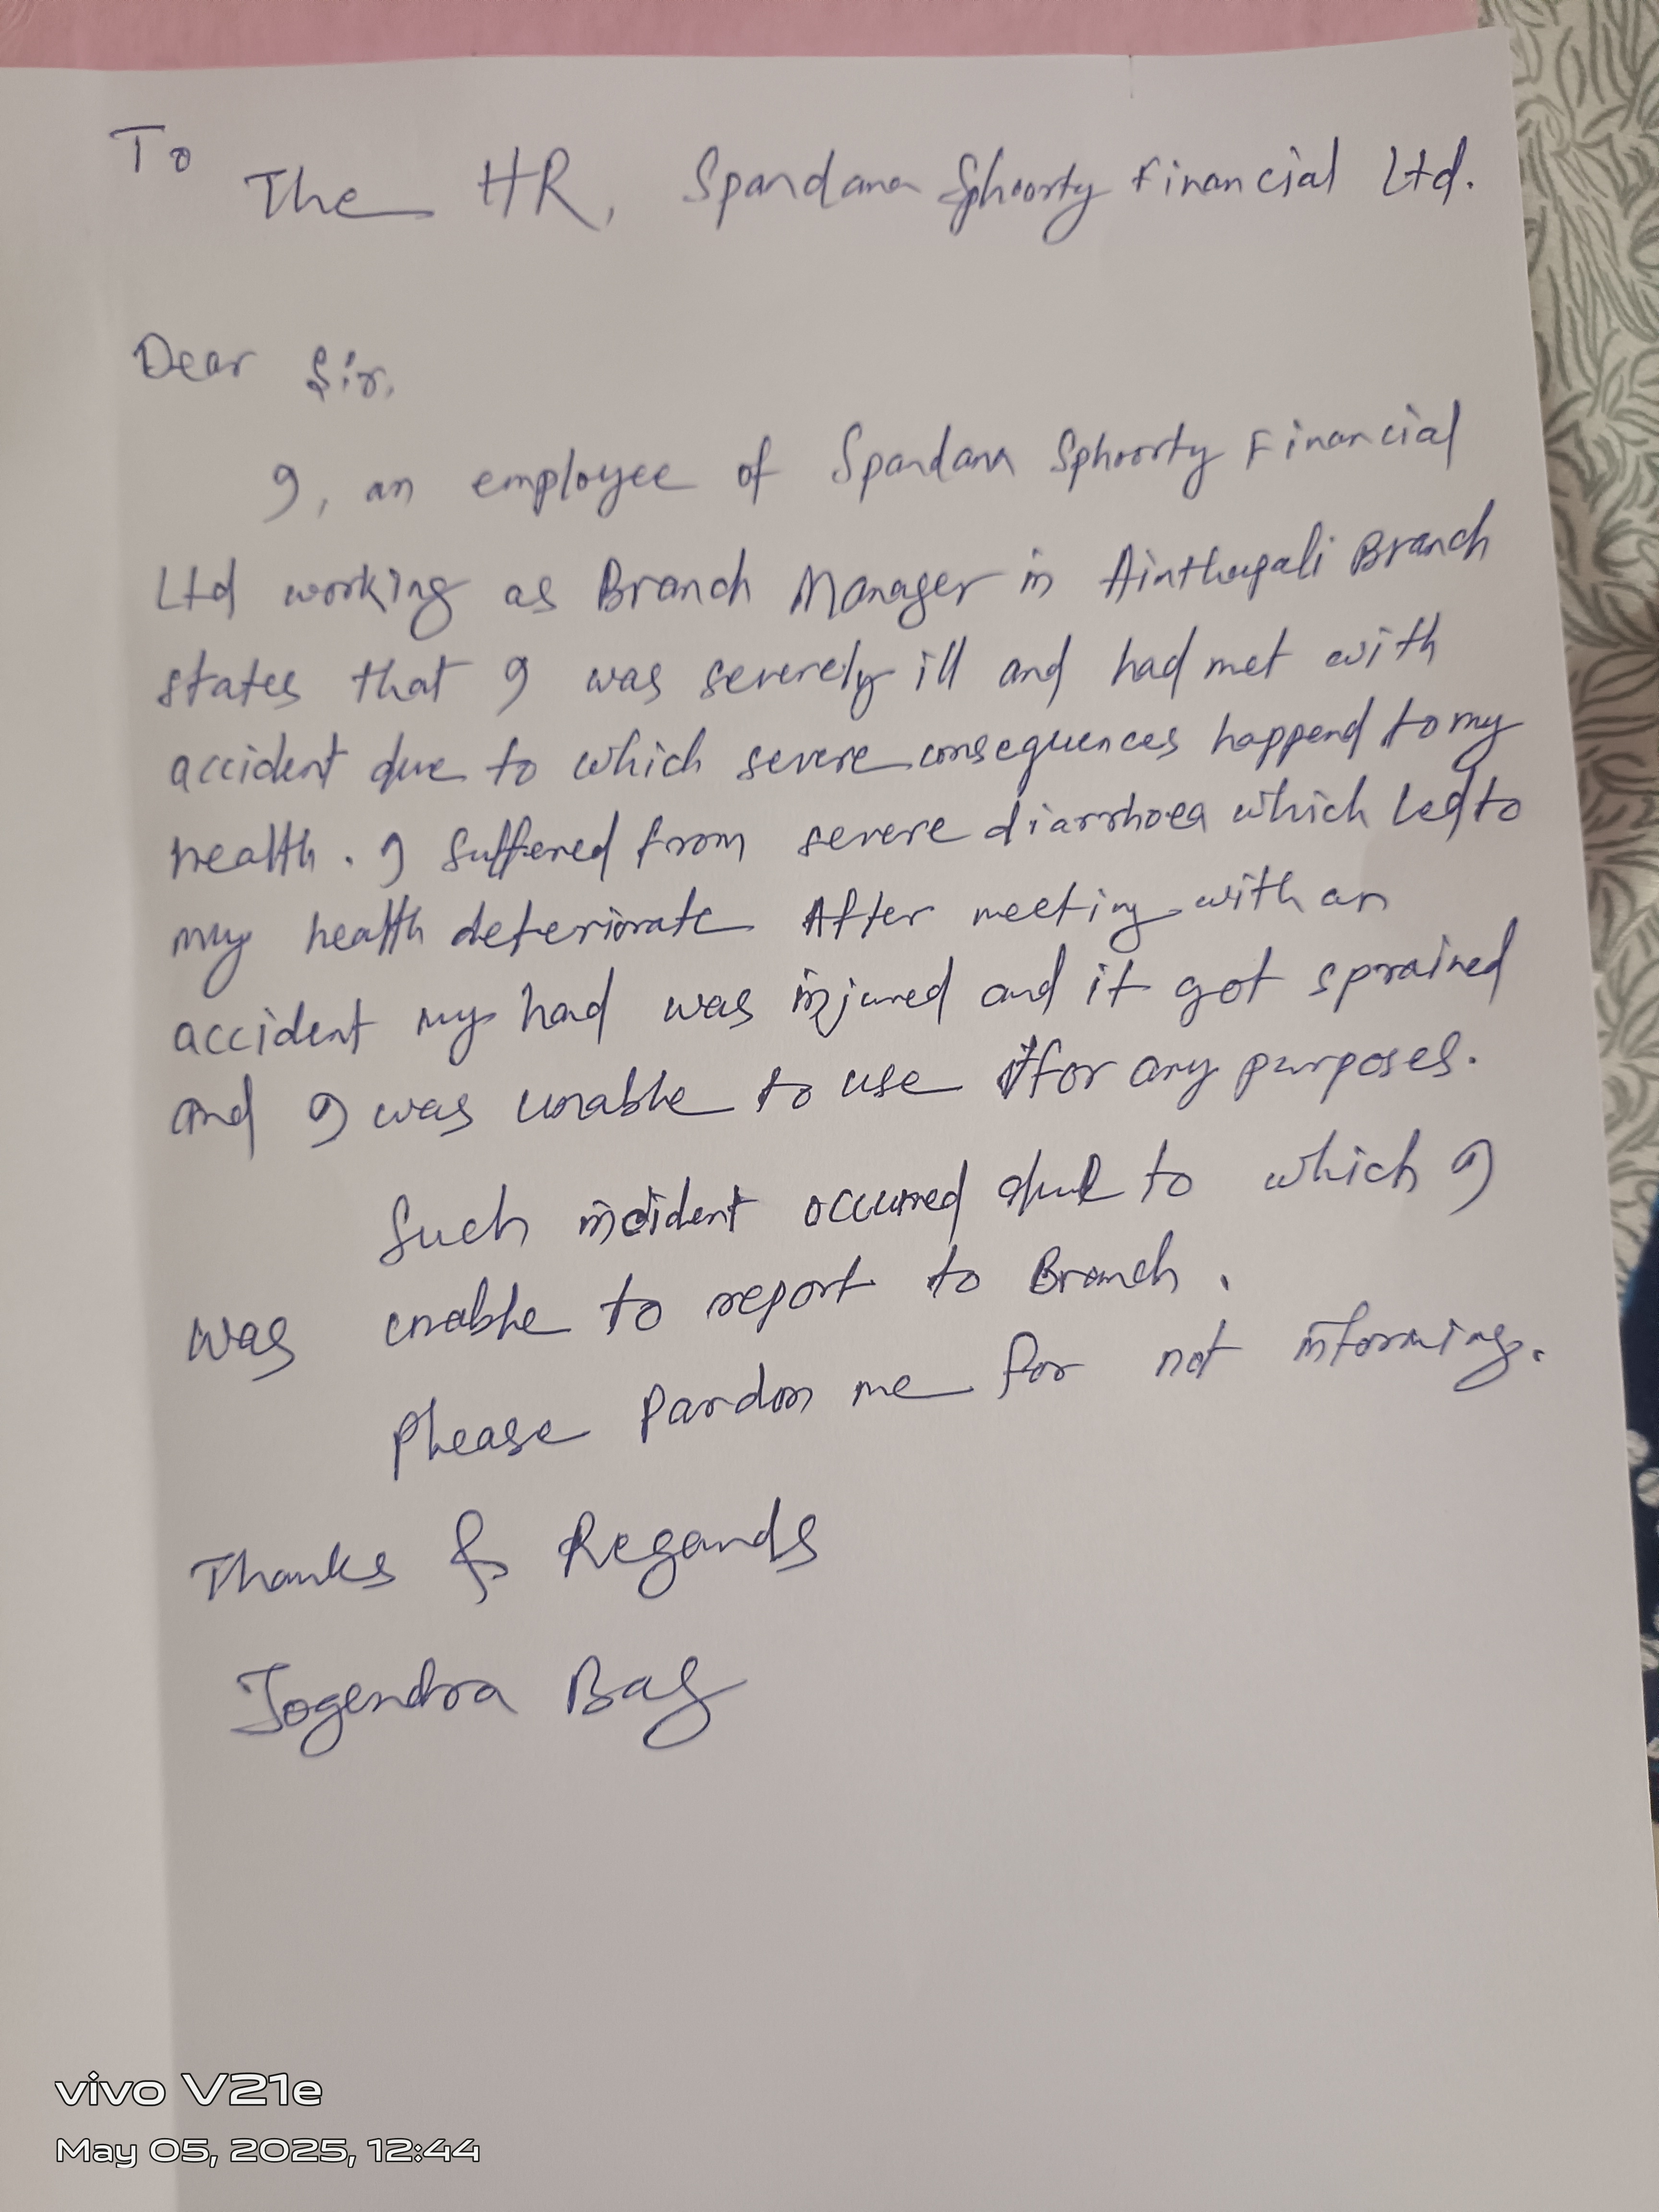 To
The HR, Spandana Sphoorty Financial Ltd.
Dear Sir,
I, an employee of Spandana Sphoorty Financial
Ltd working as Branch Manager in Ainthapali Branch
states that I was severely ill and had met with
accident due to which severe consequences happend to my
health. I suffered from severe diarrhoea which led to
my health deteriorate After meeting with an
accident my had was injured and it got sprained
and I was unable to use it for any purposes.
Such incident occurred due to which I
was unable to report to Branch.
Please Pardon me for not informing.
Thanks & Regards
Jogendra Bag
vivo V21e
May 05, 2025, 12:44